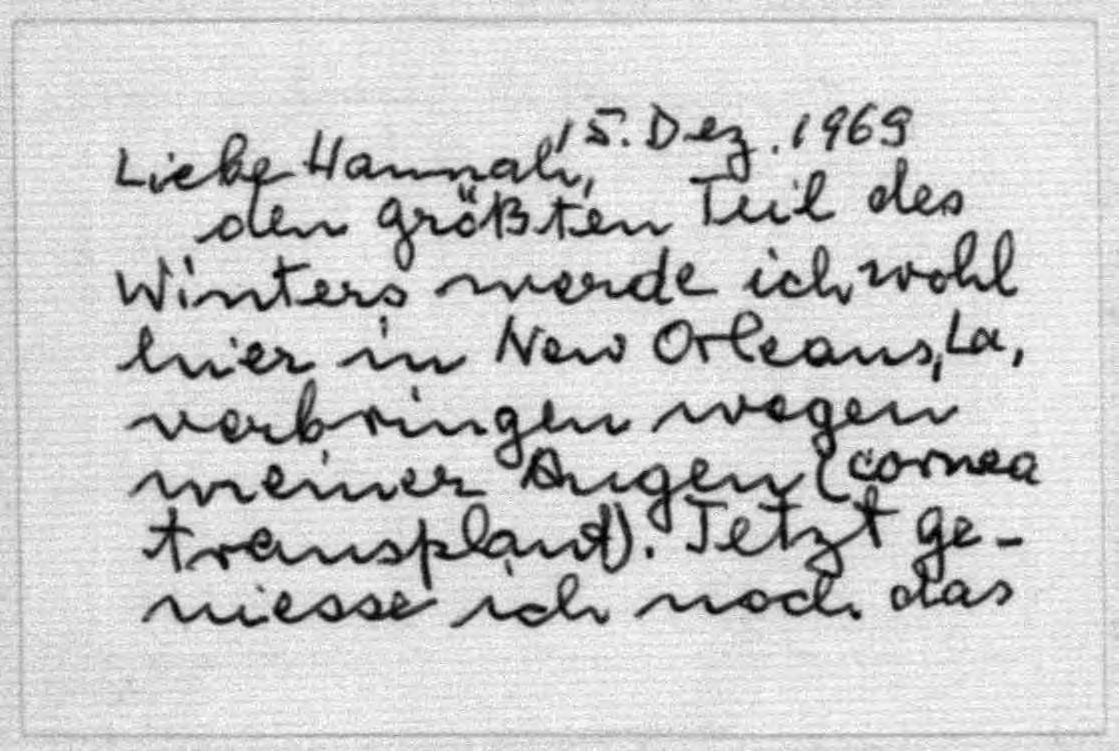 15. Dez. 1969
Liebe Hannah,
den größten Teil des
Winters werde ich wohl
hier in New Orleans, La,
verbringen wegen
meiner Augen (cornea
transplant). Jetzt ge-
niesse ich noch das